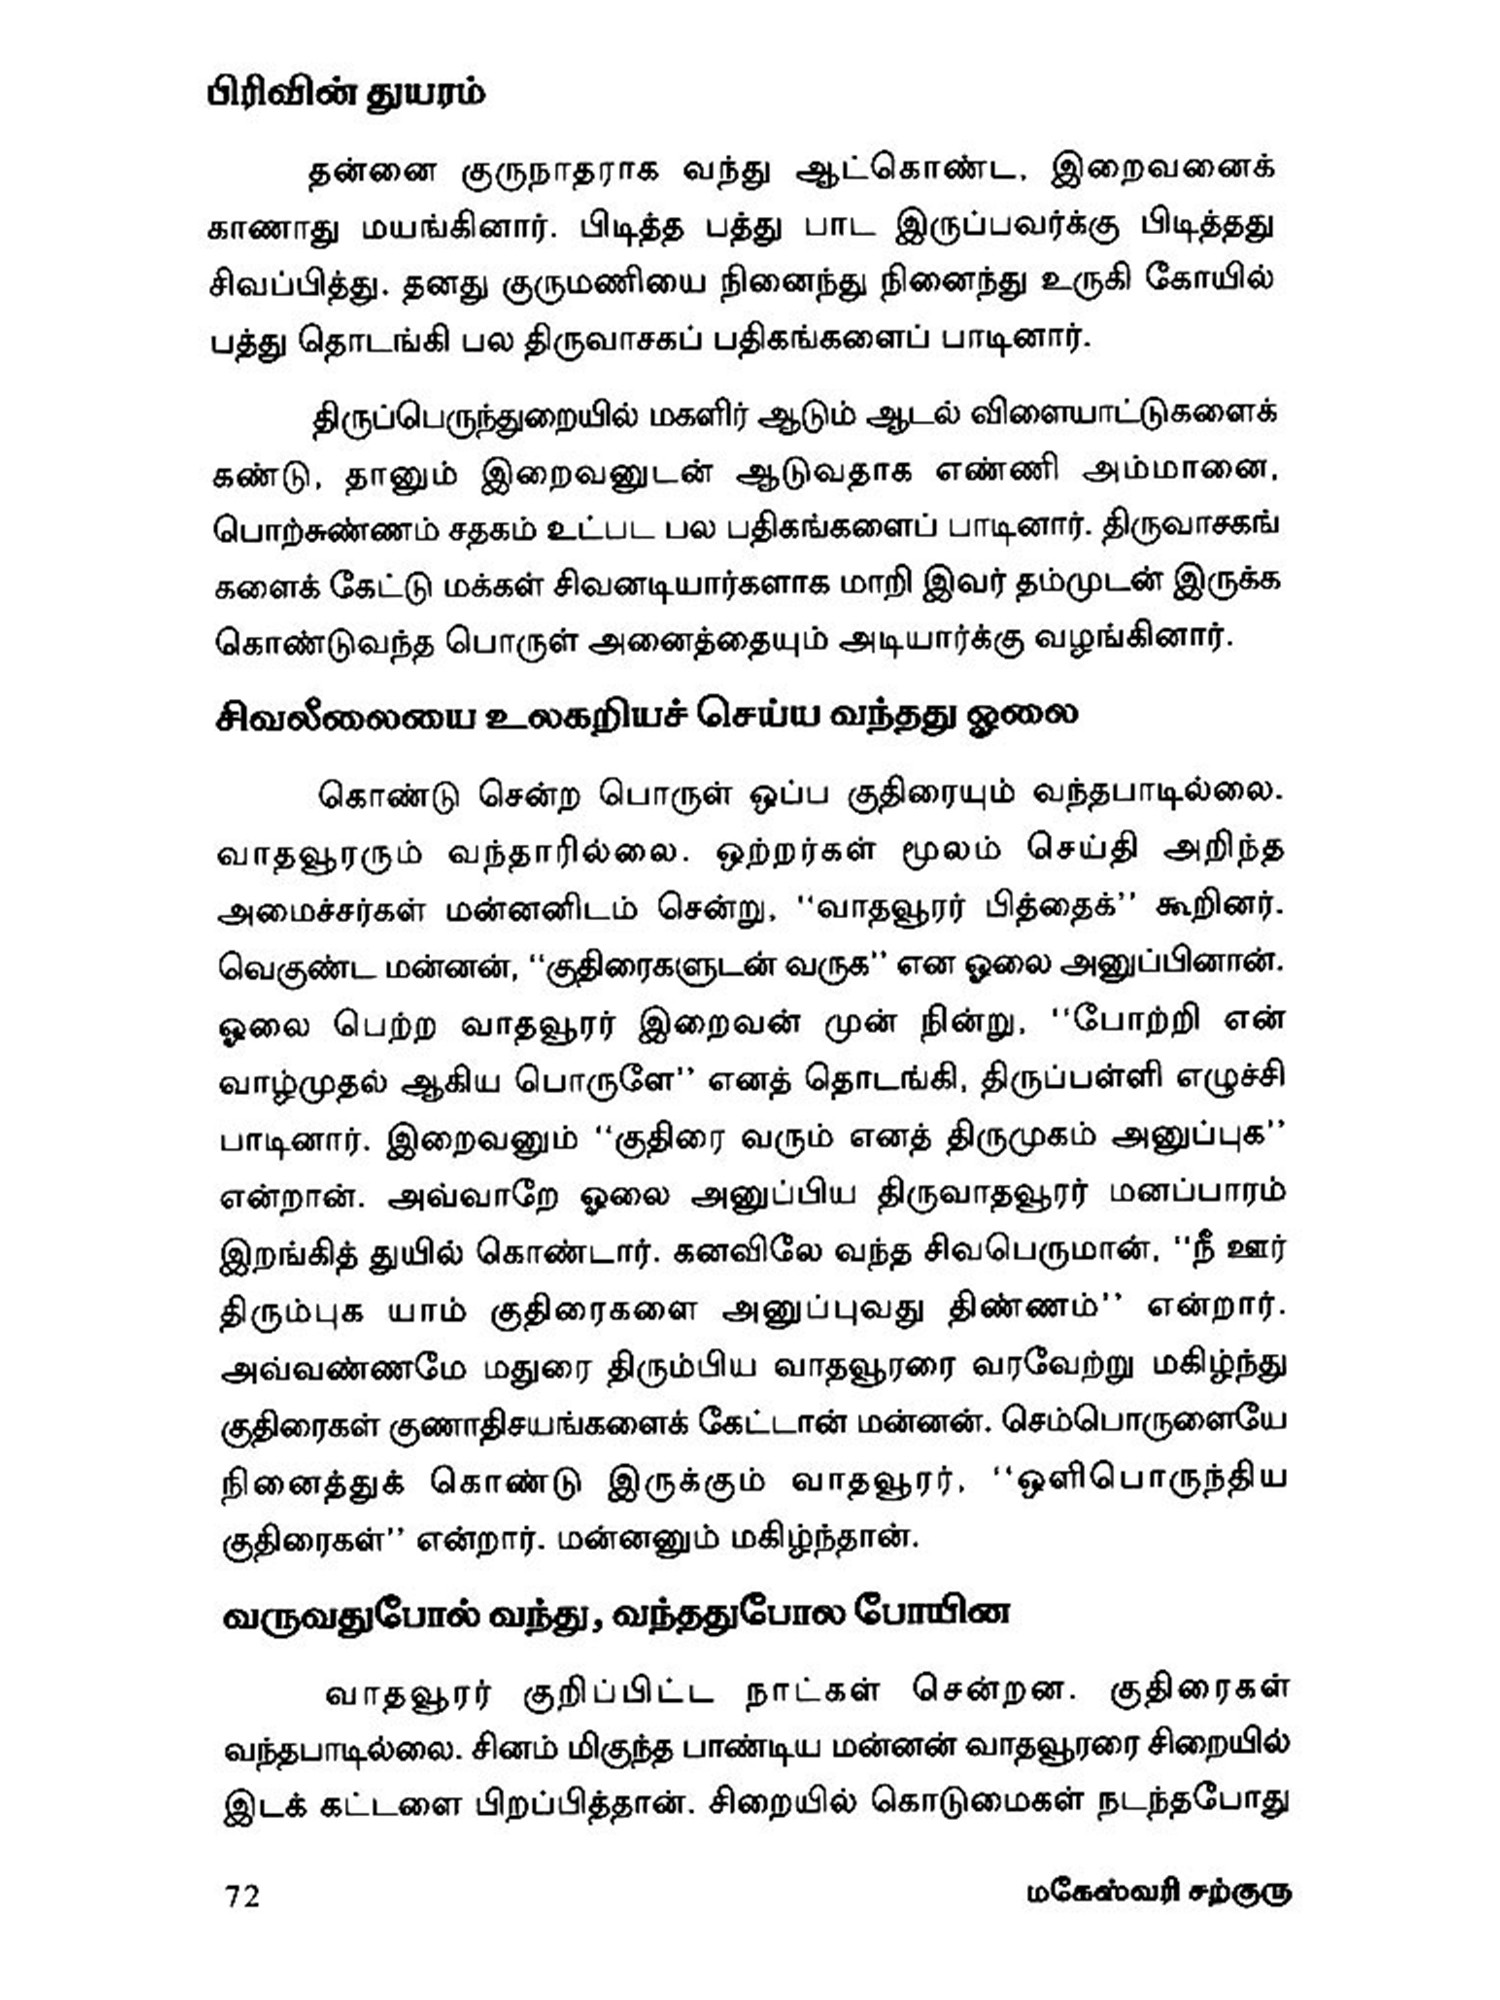 பிரிவின் துயரம்
தன்னை குருநாதராக வந்து ஆட்கொண்ட, இறைவனைக்
காணாது மயங்கினார். பிடித்த பத்து பாட இருப்பவர்க்கு பிடித்தது
சிவப்பித்து. தனது குருமணியை நினைந்து நினைந்து உருகி கோயில்
பத்து தொடங்கி பல திருவாசகப் பதிகங்களைப் பாடினார்.
திருப்பெருந்துறையில் மகளிர் ஆடும் ஆடல் விளையாட்டுகளைக்
கண்டு, தானும் இறைவனுடன் ஆடுவதாக எண்ணி அம்மானை,
பொற்சுண்ணம் சதகம் உட்பட பல பதிகங்களைப் பாடினார். திருவாசகங்
களைக் கேட்டு மக்கள் சிவனடியார்களாக மாறி இவர் தம்முடன் இருக்க
கொண்டுவந்த பொருள் அனைத்தையும் அடியார்க்கு வழங்கினார்.
சிவலீலையை உலகறியச் செய்ய வந்தது ஓலை
கொண்டு சென்ற பொருள் ஒப்ப குதிரையும் வந்தபாடில்லை.
வாதவூரரும் வந்தாரில்லை. ஒற்றர்கள் மூலம் செய்தி அறிந்த
அமைச்சர்கள் மன்னனிடம் சென்று, "வாதவூரர் பித்தைக்" கூறினர்.
வெகுண்ட மன்னன், "குதிரைகளுடன் வருக" என ஓலை அனுப்பினான்.
ஓலை பெற்ற வாதவூரர் இறைவன் முன் நின்று, "போற்றி என்
வாழ்முதல் ஆகிய பொருளே" எனத் தொடங்கி, திருப்பள்ளி எழுச்சி
பாடினார். இறைவனும் "குதிரை வரும் எனத் திருமுகம் அனுப்புக"
என்றான். அவ்வாறே ஓலை அனுப்பிய திருவாதவூரர் மனப்பாரம்
இறங்கித் துயில் கொண்டார். கனவிலே வந்த சிவபெருமான், "நீ ஊர்
திரும்புக யாம் குதிரைகளை அனுப்புவது திண்ணம்" என்றார்.
அவ்வண்ணமே மதுரை திரும்பிய வாதவூரரை வரவேற்று மகிழ்ந்து
குதிரைகள் குணாதிசயங்களைக் கேட்டான் மன்னன். செம்பொருளையே
நினைத்துக் கொண்டு இருக்கும் வாதவூரர், "ஒளிபொருந்திய
குதிரைகள்" என்றார். மன்னனும் மகிழ்ந்தான்.
வருவதுபோல் வந்து, வந்ததுபோல போயின
வாதவூரர் குறிப்பிட்ட நாட்கள் சென்றன. குதிரைகள்
வந்தபாடில்லை. சினம் மிகுந்த பாண்டிய மன்னன் வாதவூரரை சிறையில்
இடக் கட்டளை பிறப்பித்தான். சிறையில் கொடுமைகள் நடந்தபோது
72
மகேஸ்வரி சற்குரு